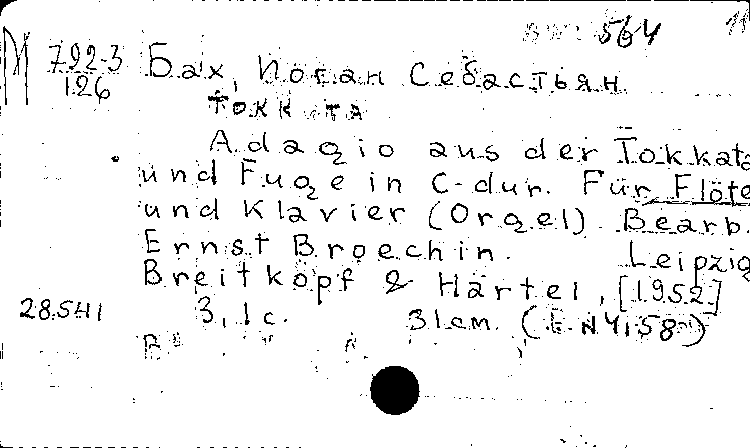 564
М 792-3 Бах, Иоган Себастьян
126
Adagio aus der Tokkata
und Fuge in C-dur. Für Flöte
und Klavier (Orgel). Bearb.
Ernst Broechin. Leipzig
Breitkopf & Härtel, [1952]
3, 1 c. 31 cm.